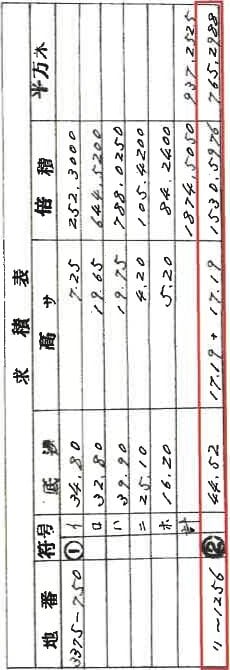 求積表
地番 符号 底邊 高サ 倍積 平方米
3375-750 ① イ 34.80 7.25 252.3000
ロ 32.80 19.65 644.5200
ハ 39.90 19.75 788.0250
ニ 25.10 4.20 105.4200
ホ 16.20 5.20 84.2400
計 1874.5050 937.2525
〃~1256 ② 44.52 17.19 + 17.19 1530.5976 765.2988